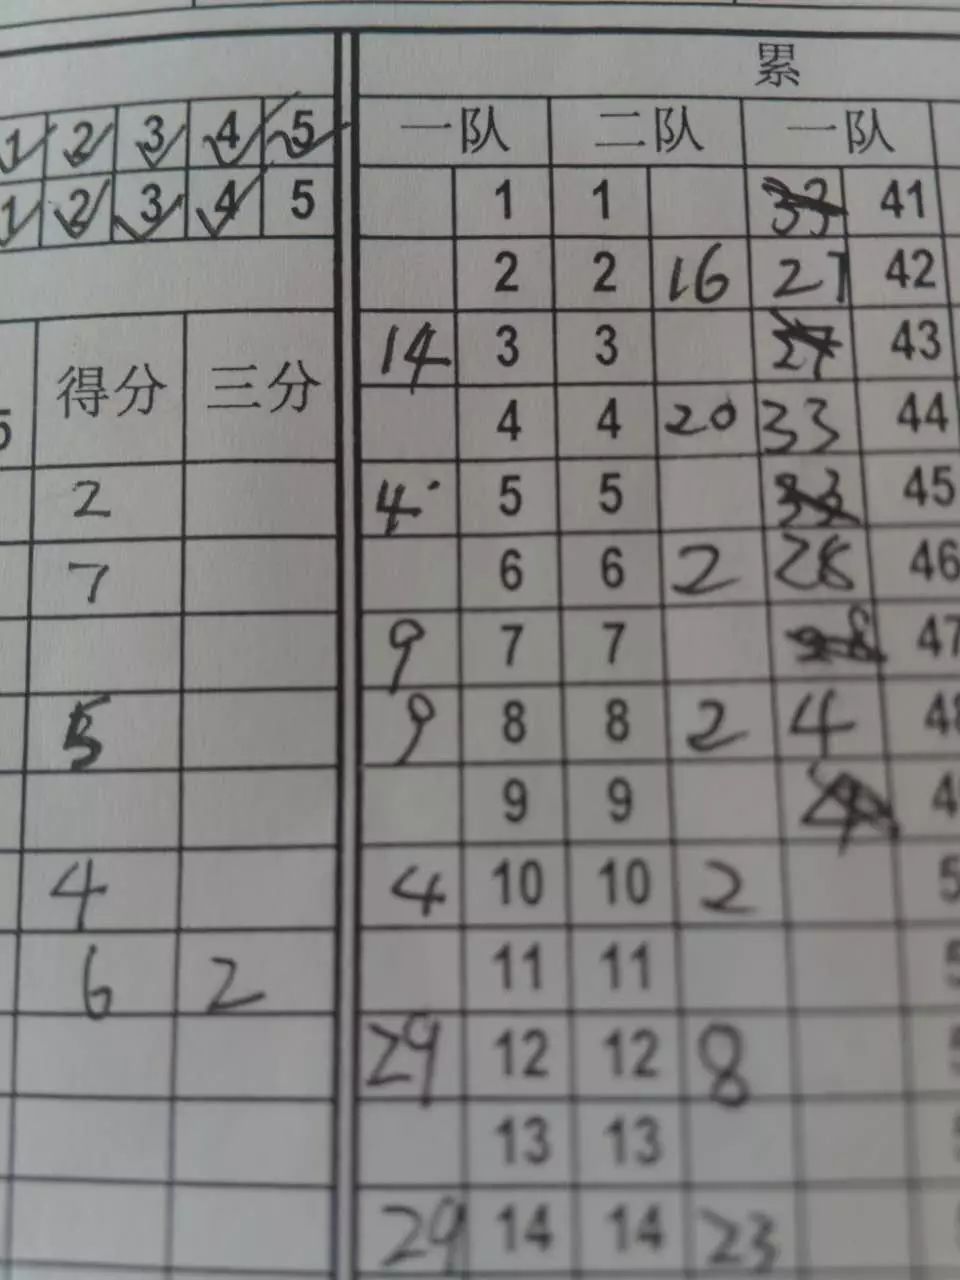 累
1 2 3 4 5 一队 二队 一队
1 2 3 4 5 1 1 33 41
2 2 16 27 42
得分 三分 14 3 3 27 43
5 4 4 20 33 44
2 4 5 5 33 45
7 6 6 2 28 46
9 7 7 28 47
5 9 8 8 2 4
9 9
4 4 10 10 2
6 2 11 11
29 12 12 8
13 13
29 14 14 23